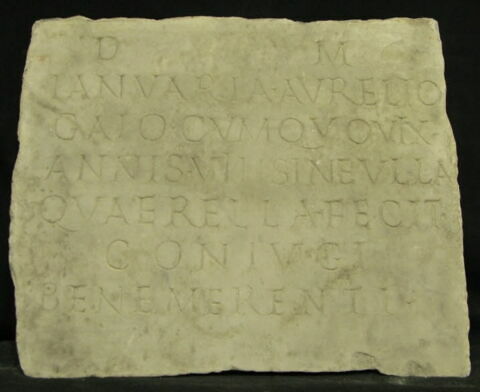 D M
IANVARIA·AVRELIO
GAIO·CVM QVO VIX
ANNIS·VII SINE VLLA
QVAERELLA·FECIT·
CONIVGI
BENEMERENTI·